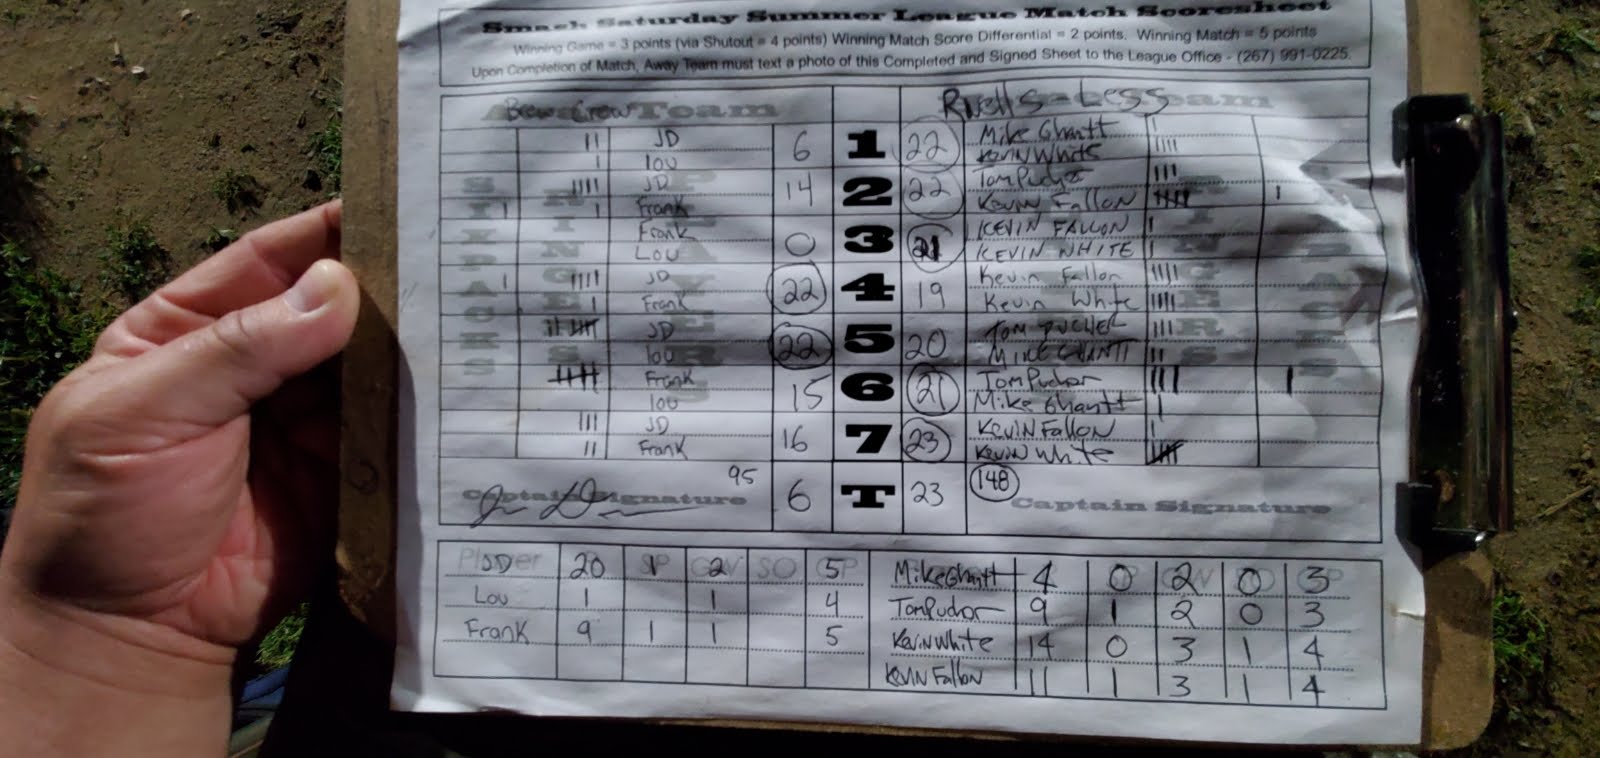 Smash Saturday Summer League Match Scoresheet
Winning Game = 3 points (via Shutout = 4 points) Winning Match Score Differential = 2 points. Winning Match = 5 points
Upon Completion of Match, Away Team must text a photo of this Completed and Signed Sheet to the League Office - (267) 991-0225.
Team Team
JD 6 1 22 Mike Ghantt
Lou Kevin White
JD 14 2 22 Tom Pucher
Frank Kevin Fallon
Frank 0 3 21 KEVIN FALLON
Lou KEVIN WHITE
JD 22 4 19 Kevin Fallon
Frank Kevin White
JD 22 5 20 TOM PUCHER
lou MIKE GHANTT
Frank 15 6 21 Tom Pucher
lou Mike Ghantt
JD 16 7 23 KEVIN FALLON
Frank Kevin White
95 6 T 23 148
Captain Signature Captain Signature
Player SP GW SO GP
JD 20 1 2 5 Mike Ghantt 4 0 2 0 3
Lou 1 1 4 Tom Pucher 9 1 2 0 3
Frank 9 1 1 5 Kevin White 14 0 3 1 4
Kevin Fallon 11 1 3 1 4